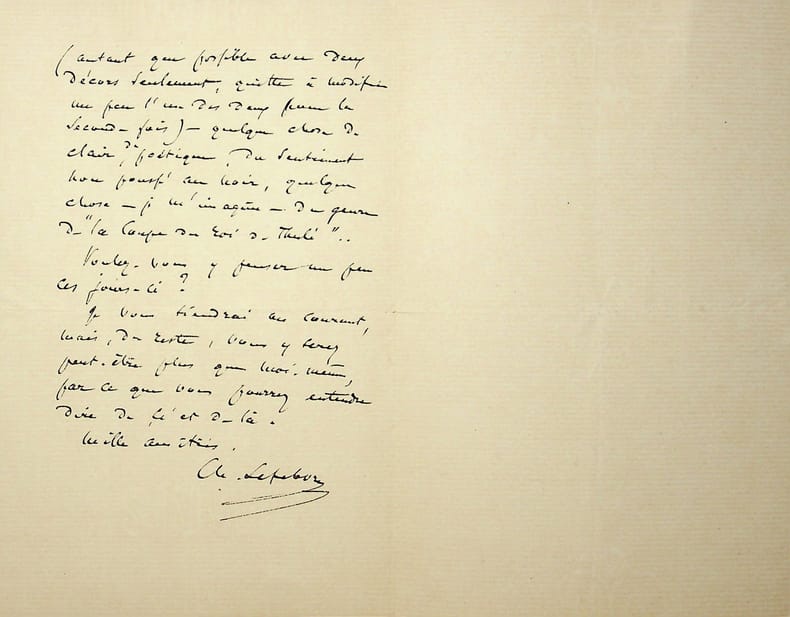 (autant que possible avec deux
décors seulement, quitte à modifier
un peu l'un des deux pour la
seconde fois) — quelque chose de
clair, de poétique, du sentiment
non poussé au noir, quelque
chose — je m'imagine — du genre
de "la Coupe du Roi de Thulé"..
Voulez-vous y penser un peu
ces jours-ci ?
Je vous tiendrai au courant,
mais, du reste, vous y serez
peut-être plus que moi-même,
par ce que vous pourrez entendre
dire de ci et de là.
Mille amitiés.
Ch. Lefebvre